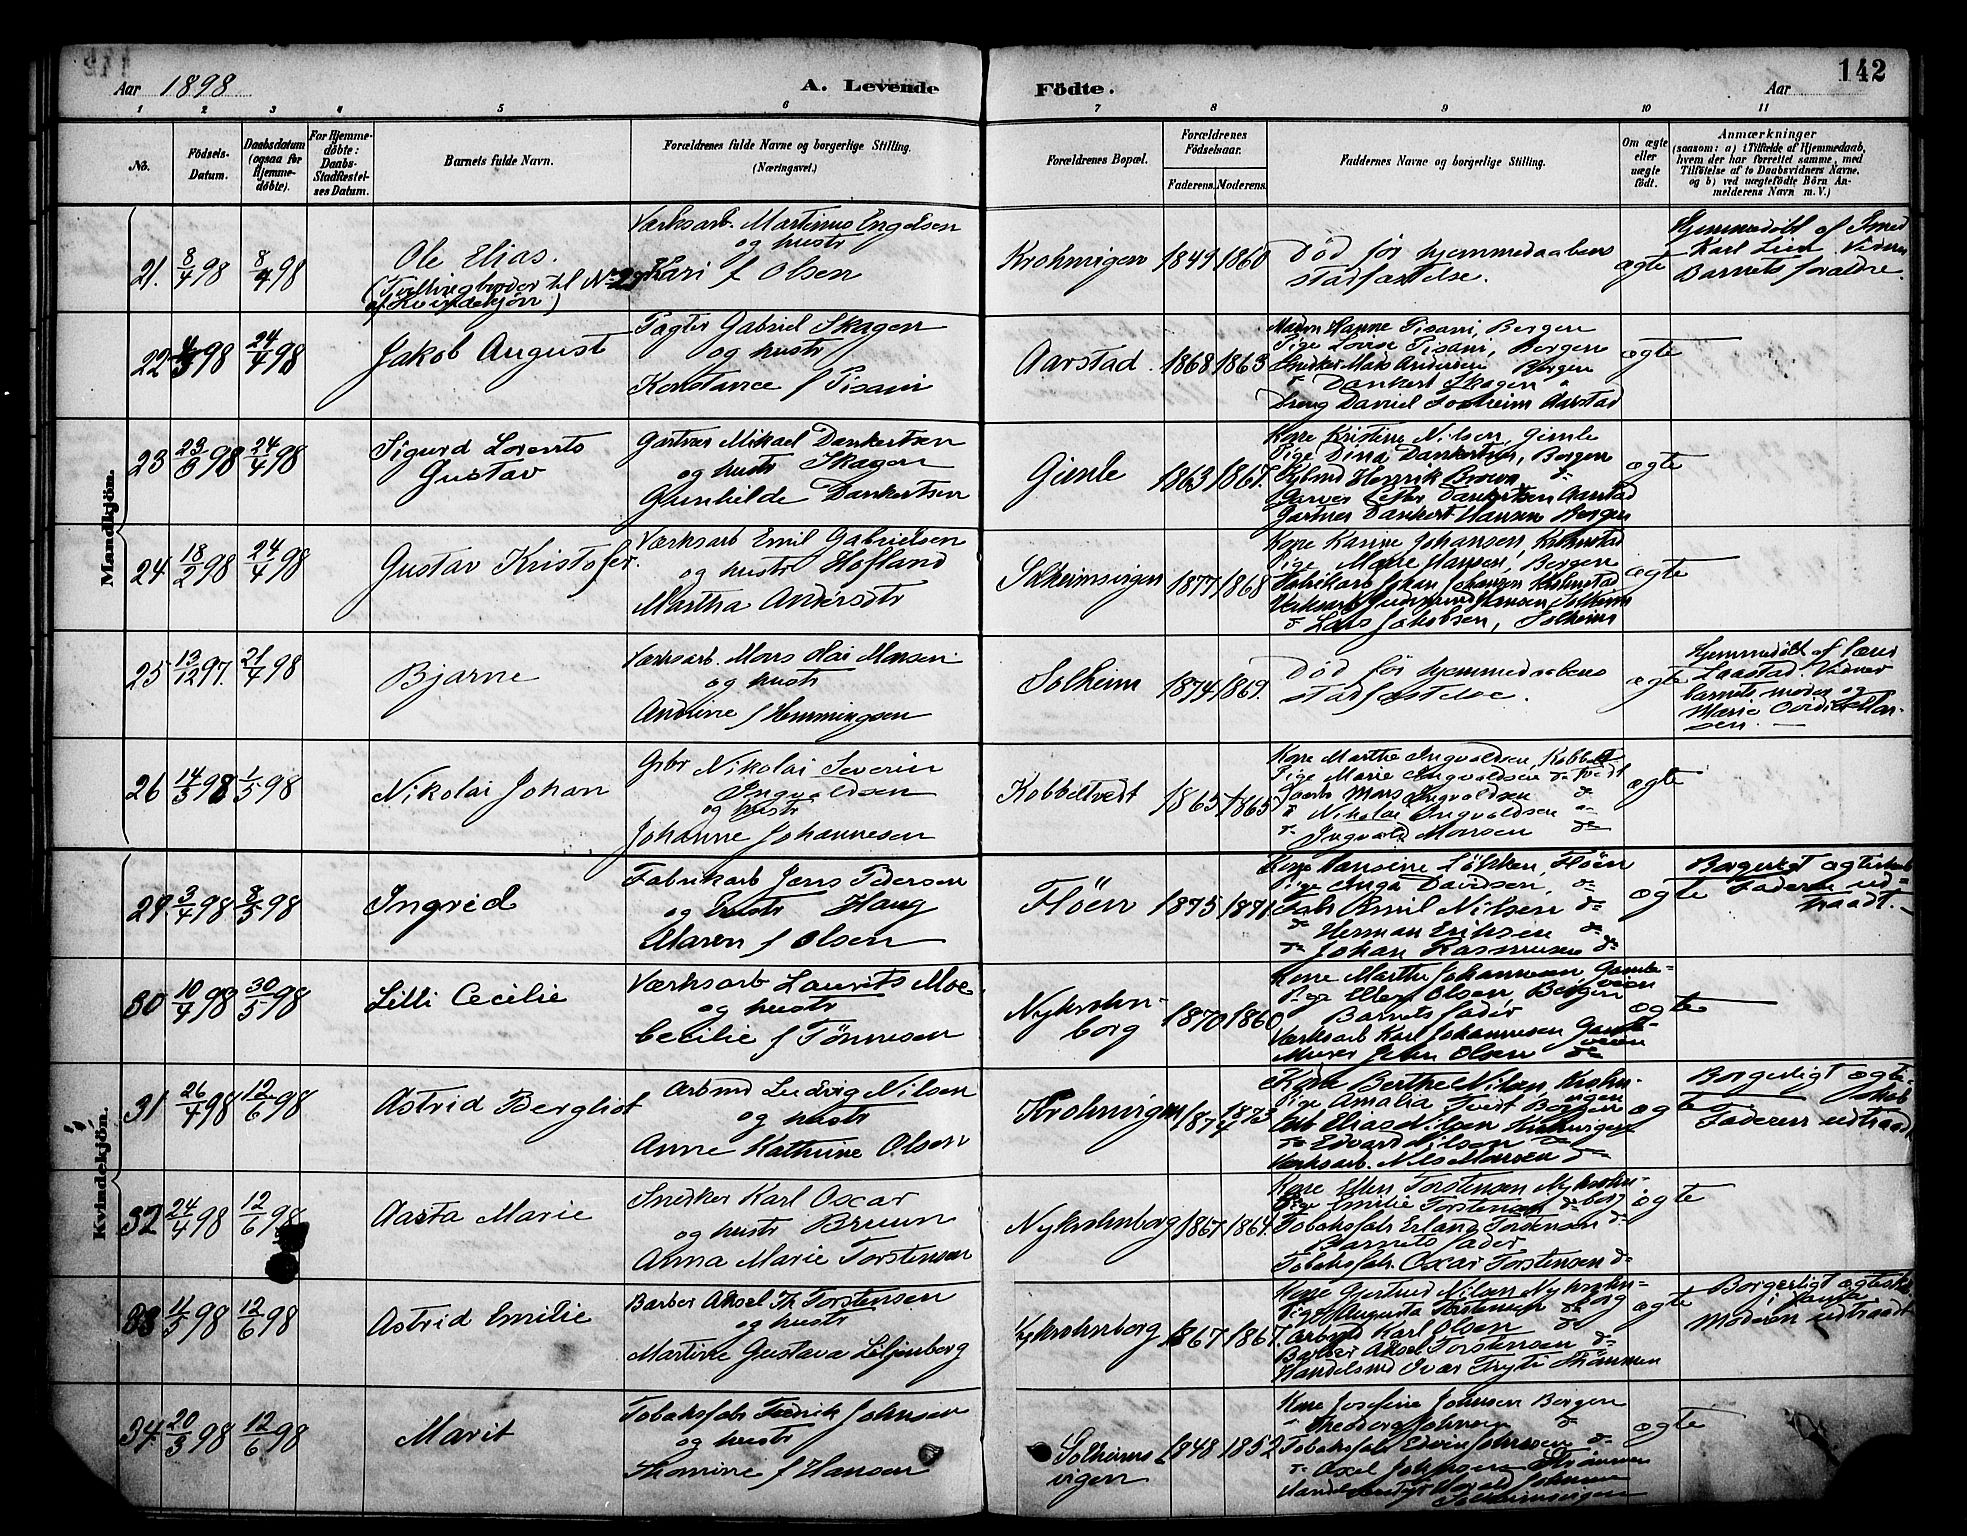 142
Aar 1898
A. Levende Födte.
Aar
1 2 3 4 5 6 7 8 9 10 11
No.
Födsels-Datum.
Daabsdatum (ogsaa for Hjemmedöbte).
For Hjemmedöbte: Daabs-Stadfæstelses Datum.
Barnets fulde Navn.
Forældrenes fulde Navne og borgerlige Stilling. (Næringsvei.)
Forældrenes Bopæl.
Forældrenes Födselsaar.
Faderens. Moderens.
Faddernes Navne og borgerlige Stilling.
Om ægte eller uægte födt.
Anmærkninger
(saasom: a) i Tilfælde af Hjemmedaab, hvem der har forrettet samme, med Tilföielse af to Daabsvidners Navne, og b) ved uægtefödte Börn Anmelderens Navn m. V.)
Mandkjön.
21. 8/4 98 8/4 98
Ole Elias.
(Tvillingbroder til No 29
af Kvindekjön)
Værksarb. Martinus Engelsen
og hustr
Kari f Olsen
Krohnvigen 1849 1860
Død før hjemmedaabens
stadfæstelse.
ægte
Hjemmedøbt af Smed
Karl Lien. Vidner
Barnets forældre.
22 98 24/4 98
Jakob August
Gabriel Skagen
og hustr
Konstance f Pisani
Aarstad. 1868 1863
Hanne Pisani, Bergen
Pige Lovise Pisani, Bergen
Snedker Mads Andersen Bergen
Dankert Skagen
Dreng Daniel Aarstad
ægte
23 23/3 98 24/4 98
Sigurd Lorents
Gustav
Gartner Mikael Dankertsen
og hustr Skagen
Gunhilde Dankertsen
Gimle 1863 1867.
Kone Kristine Nilsen, Gimle
Pige Dina Dankertsen, Bergen
Henrik Brown
Dankertsen Aarstad
Gartner Dankert Hansen Bergen
ægte
24 18/2 98 24/4 98
Gustav Kristofer.
Værksarb Emil Gabrielsen
og hustr Hofland
Martha Andersdtr
Solheimsvigen 1877 1868
Kone Johansen,
Pige Marie Hansen, Bergen
Fabrikarb Johan Johansen
Værksarb Gudmund Hansen Solheim
do Lars Jakobsen, Solheim
ægte
25 13/12 97. 21/4 98
Bjarne
Værksarb. Mons Olai Monsen
og hustr
Andrine f Hemmingsen
Solheim 1874 1869.
Død før hjemmedaabens
stadfæstelse.
ægte
Hjemmedøbt af
Laastad. Vidner
barnets moder og
Marie
26 14/3 98 1/5 98
Nikolai Johan
Gbr Nikolai Severin
Ingvaldsen
og hustr
Johanne Johannesen
Kobbeltvedt 1865 1865
Kone Marthe Ingvaldsen, Kobbelt
Pige Marie Ingvaldsen do tvedt
Mons Ingvaldsen do
Nikolai Ingvaldsen
do Ingvald Monsen do
ægte
Kvindekjön.
29 3/4 98 8/5 98
Ingrid
Fabrikarb Jens Pedersen
og hustr Haug
Maren f Olsen
Fløen 1875 1871
Kone Hansine Fløen
Pige Inga Davidsen, do
Fab Emil Nilsen do
do Herman Eriksen do
do Johan Rasmussen do
ægte
Borgerligt
Faderen ud-
traadt.
30 10/4 98 30/5 98
Lilli Cecilie
Værksarb Laurits Moe.
og hustr
Cecilie f Tønnesen
Nykrohn-
borg 1870 1860
Kone Marthe Johannesen Gamle-
Pige Ellen Olsen, Bergen veien
Barnets fader
Værksarb Karl Johannesen Gamle-
Murer John Olsen do veien
ægte
31 26/4 98 12/6 98
Astrid Bergliot
Arbmd Ludvig Nilsen
og hustr
Anne Kathrine Olsen
Krohnvigen 1874 1873
Kone Berthe Nilsen, Krohn-
Pige Amalia Tvedt Bergen vigen
Arb Elias Nilsen Krohnvigen
do Edvard Nilsen do
Værksarb. Nils Monsen do
ægte
Borgerligt ægte-
skab
Faderen udtraadt
32 24/4 98 12/6 98
Aasta Marie
Snedker Karl Oscar
og hustr Bruun
Anna Marie Torstensen
Nykrohnborg 1867 1864
Kone Ellen Torstensen Nykrohn-
Pige Emilie Torstensen do borg
Tobaksfab Erland Torstensen do
Barnets fader
Tobaksfab. Oscar Torstensen do
ægte
33 98 12/6 98
Astrid Emilie
Barber Aksel Th Torstensen
og hustr
Martine Gustava Liljenberg
Nykrohnborg 1867 1867.
Kone Gjertrud Nilsen Nykrohn-
Pige Augusta Torstensen do borg
Arbmd Karl Olsen do
Barber Aksel Torstensen do
Handelsmd Ivar
ægte
Borgerligt ægtesk
Moderen udtraadt
34. 20/3 98 12/6 98
Marit
Tobaksfab Fredrik Johnsen
og hustr
Thomine f Hansen
Solheims
vigen 1848 1852
Kone Josefine Johnsen Bergen
Johnsen do
Tobaksfab Edvin Johnsen do
do Axel Johnsen
Harald Johnsen
Solheimsvigen
ægte